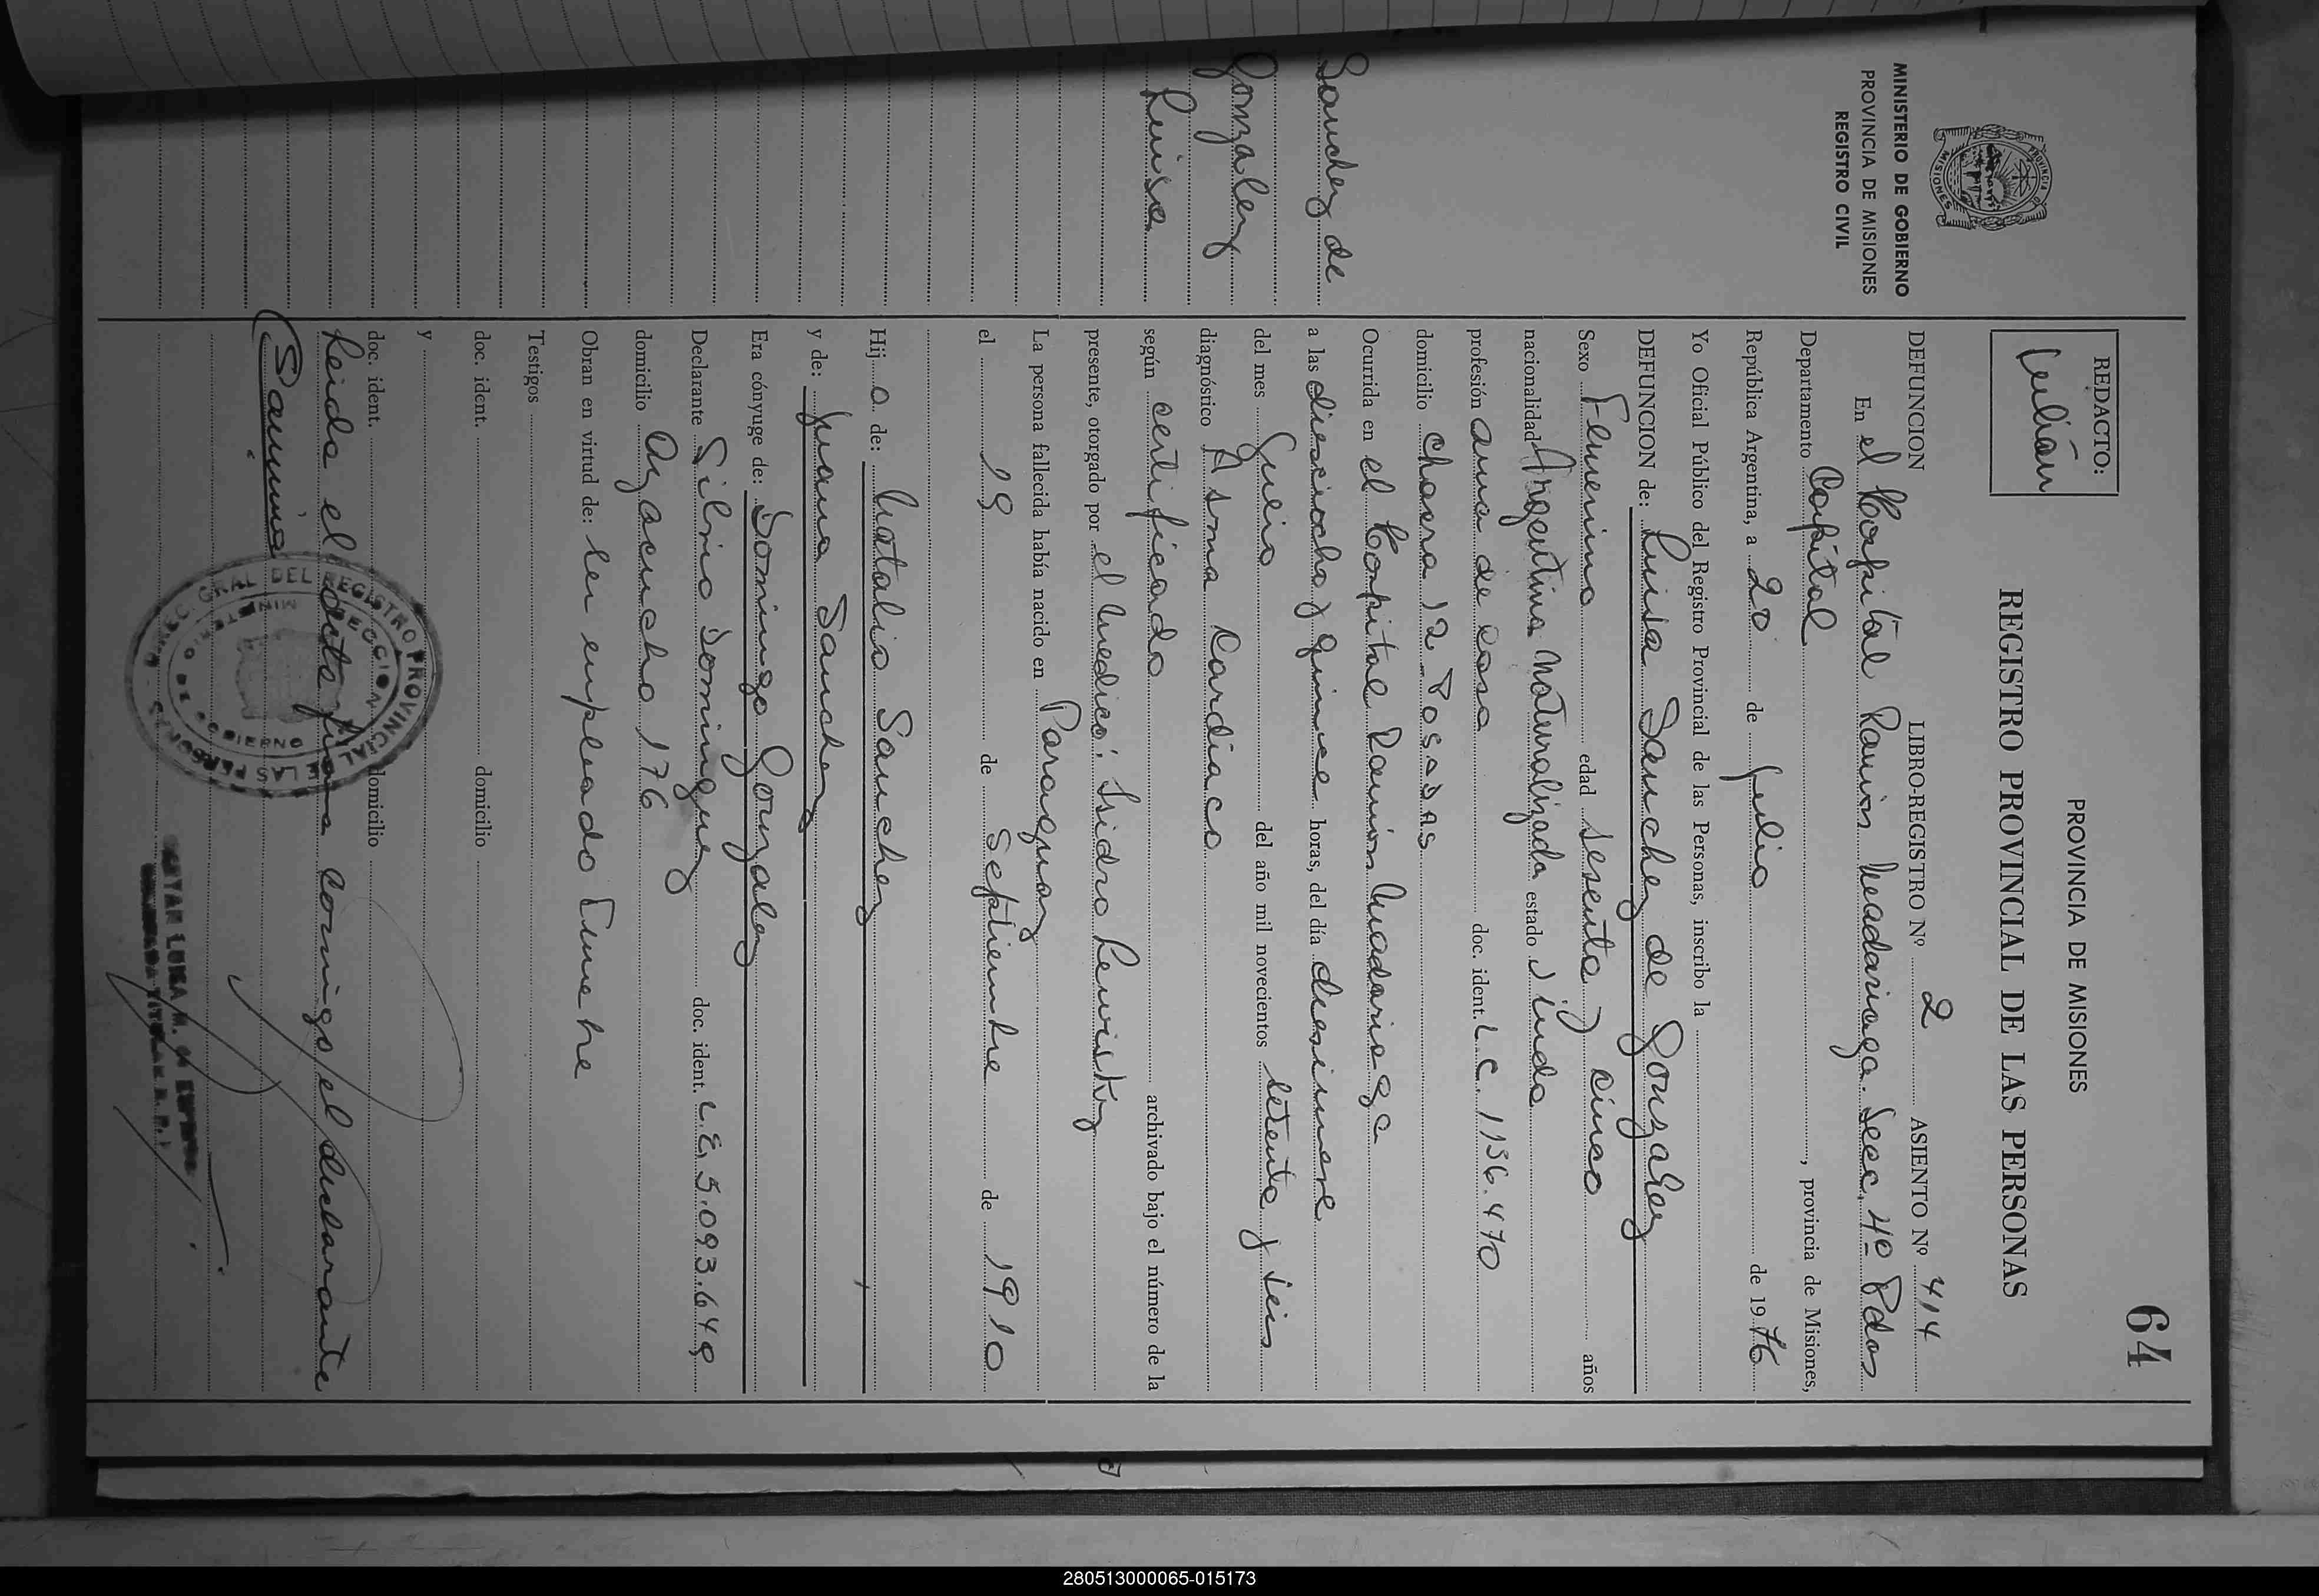 64
MINISTERIO DE GOBIERNO
PROVINCIA DE MISIONES
REGISTRO CIVIL
Sanchez de
Gonzalez
Luisa
REDACTO:
Julián
PROVINCIA DE MISIONES
REGISTRO PROVINCIAL DE LAS PERSONAS
DEFUNCION LIBRO-REGISTRO Nº 2 ASIENTO Nº 414
En el Hospital Ramón Madariaga. Secc. 4º Pdas
Departamento Capital, provincia de Misiones,
República Argentina, a 20 de Julio de 1976
Yo Oficial Público del Registro Provincial de las Personas, inscribo la
DEFUNCION de: Luisa Sanchez de Gonzalez
Sexo Femenino edad sesenta y cinco años
nacionalidad Argentina Naturalizada estado Viuda
profesión ama de casa doc. ident. L.C. 1136.470
domicilio Chacra 12 Posadas
Ocurrida en el Hospital Ramón Madariaga
a las dieciocho y quince horas, del día diesinueve
del mes Julio del año mil novecientos setenta y seis
diagnóstico Asma Cardíaco
según certificado archivado bajo el número de la
presente, otorgado por el medico: Isidro Lewisky
La persona fallecida había nacido en Paraguay
el 19 de Septiembre de 1910
Hij a de: Natalio Sanchez
y de: Juana Sanchez
Era cónyuge de: Domingo Gonzalez
Declarante Silvio Dominguez doc. ident. L.E. 5.093.649
domicilio Ayacucho 176
Obran en virtud de: ser empleado Funebre
Testigos
doc. ident. domicilio
y
doc. ident. domicilio
Leida el acta firma conmigo el declarante
DEL REGISTRO PROVINCIAL DE LAS PERSONAS
MINISTERIO DE GOBIERNO
280513000065-015173